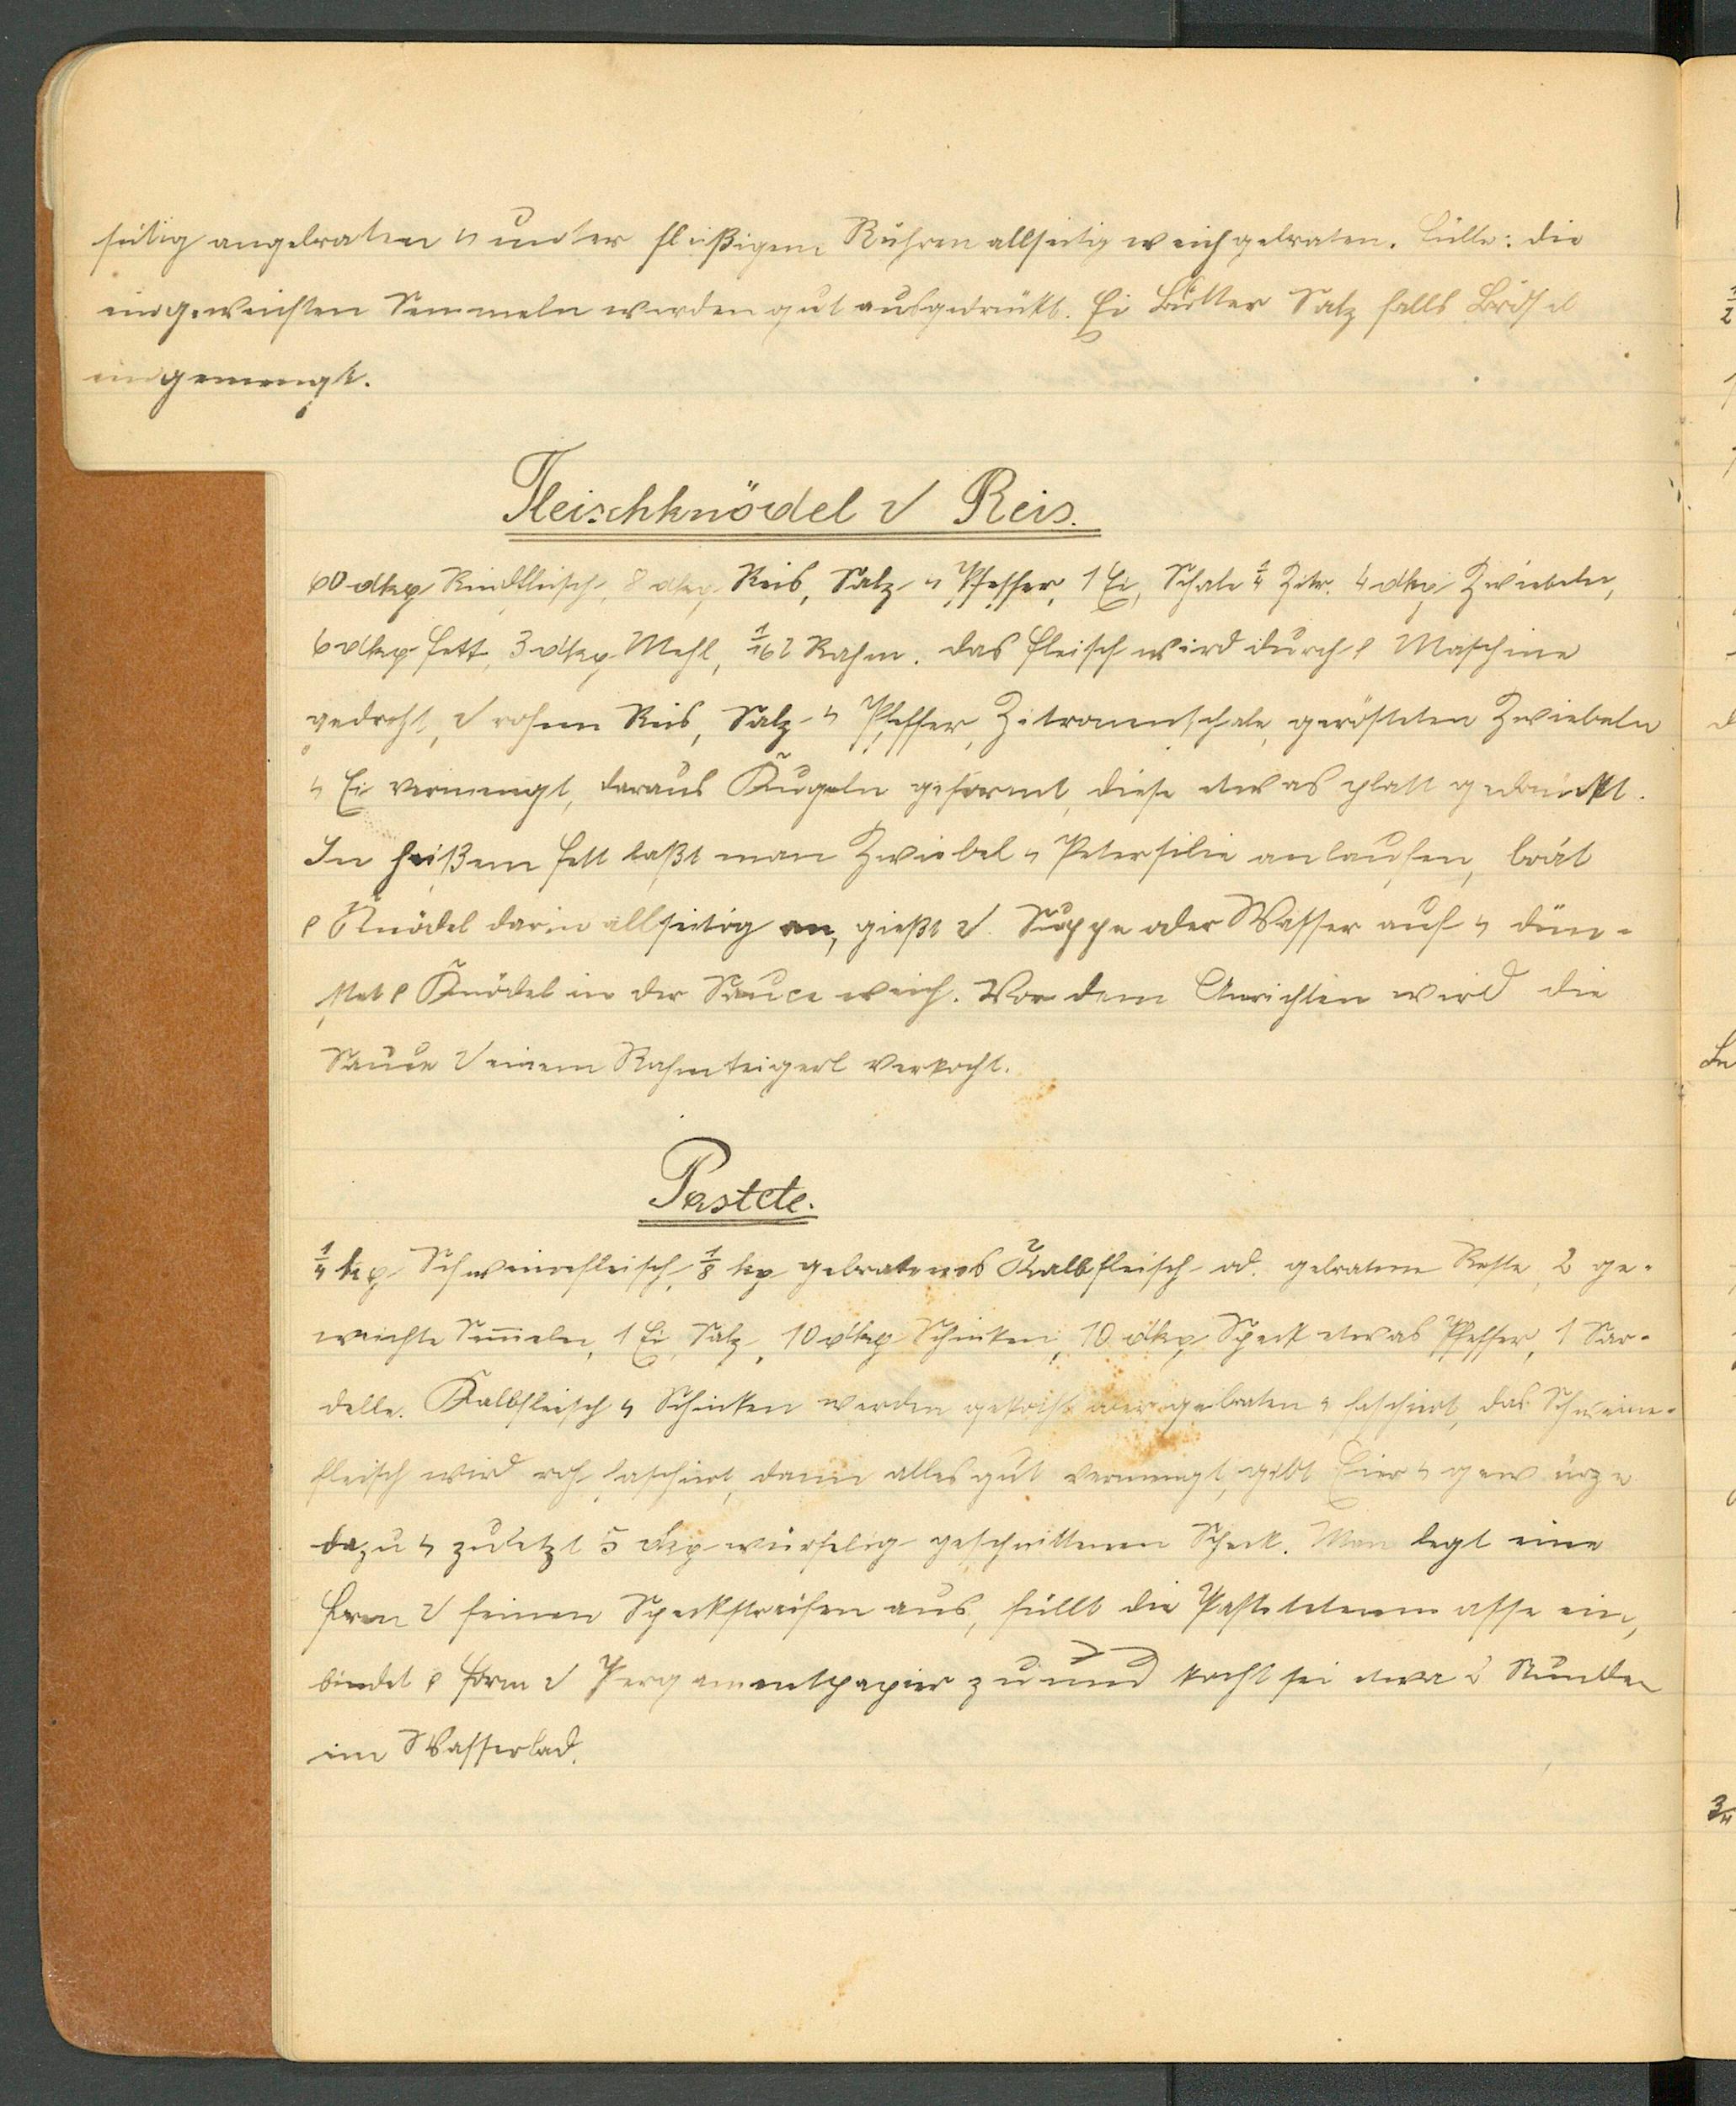 seitig angebraten u unter fleißigem Rühren allseitig weich gebraten. Fülle: die
eingeweichten Semmeln werden gut ausgedrückt. Ei Butter Salz falls Brösel
eingemengt.
Fleischknödel √ Reis.
60 dkg Rindfleisch, 8 dkg Reis, Salz u Pfeffer, 1 Ei, Schale ¼ Zitr. 4 dkg Zwiebeln,
6 dkg Fett, 3 dkg Mehl, 1/16 l Rahm. Das Fleisch wird durch Maschine
gedreht, √ rohem Reis, Salz u Pfeffer, Zitronenschale, gerösteten Zwiebeln
u Ei vermengt, daraus Kugeln geformt, diese etwas platt gedrückt.
In heißem Fett laßt man Zwiebel u Petersilie anlaufen, brät
Knödel darin allseitig an, gießt √ Suppe oder Wasser auf u dün-
stet Knödel in der Sauce weich. Vor dem Anrichten wird die
Sauce √ einem Rahmteigerl verkocht.
Pastete.
¼ kg Schweinefleisch, ⅛ kg gebratenes Kalbfleisch od. gebratene Reste, 2 ge-
weichte Sem̄eln, 1 Ei, Salz, 10 dkg Schinken, 10 dkg Speck etwas Pfeffer, 1 Sar-
delle. Kalbfleisch u Schinken werden gekocht oder gebraten u faschiert, das Schweine-
fleisch wird roh faschiert, dann alles gut vermengt, gibt Eier u gewürze
dazu u zuletzt 5 dkg würfelig geschnittenen Speck. Man legt eine
Form √ feinen Speckstreifen aus, füllt die Pastetenmasse ein,
bindet Form √ Pergamentpapier zu und kocht sei etwa 2 Stunden
im Wasserbad.